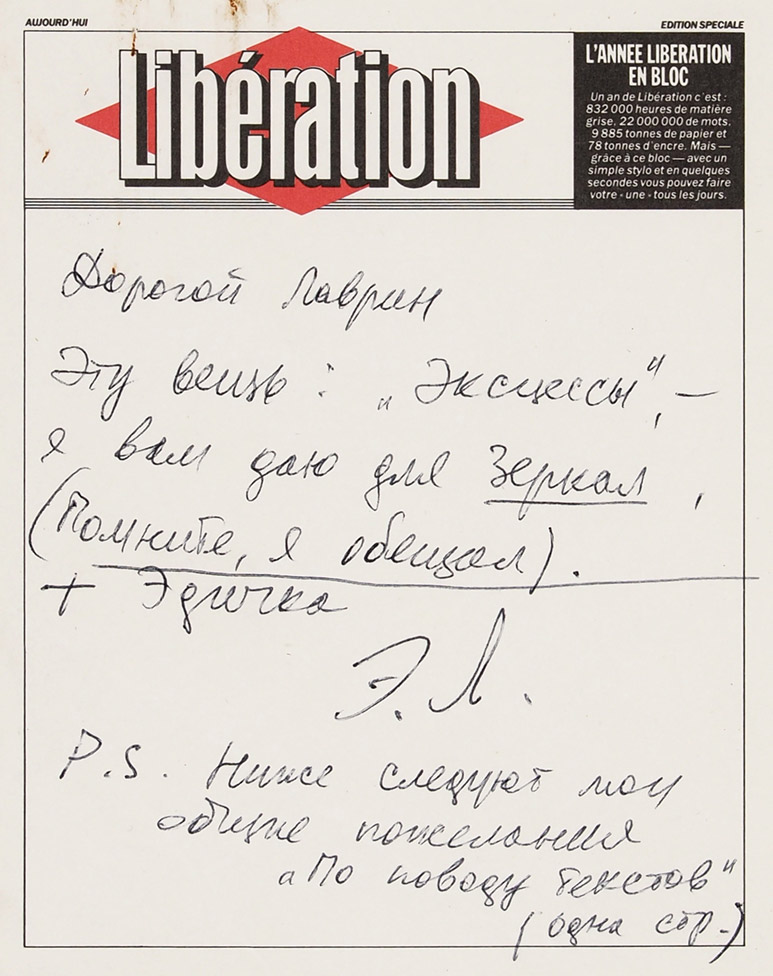 AUJOURD'HUI
EDITION SPECIALE
Libération
L'ANNEE LIBERATION
EN BLOC
Un an de Libération c'est :
832 000 heures de matière
grise. 22 000 000 de mots.
9 885 tonnes de papier et
78 tonnes d'encre. Mais —
grâce à ce bloc — avec un
simple stylo et en quelques
secondes vous pouvez faire
votre « une » tous les jours.
Дорогой Лаврин
Эту вещь : „Эксцессы“, —
я вам даю для Зеркал,
(Помните, я обещал).
+ Эдичка
Э. Л.
P.S. Ниже следуют мои
общие пожелания
«По поводу текстов"
(одна стр.)